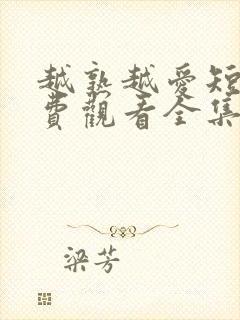 越熟越愛短
費觀看全集
梁芳